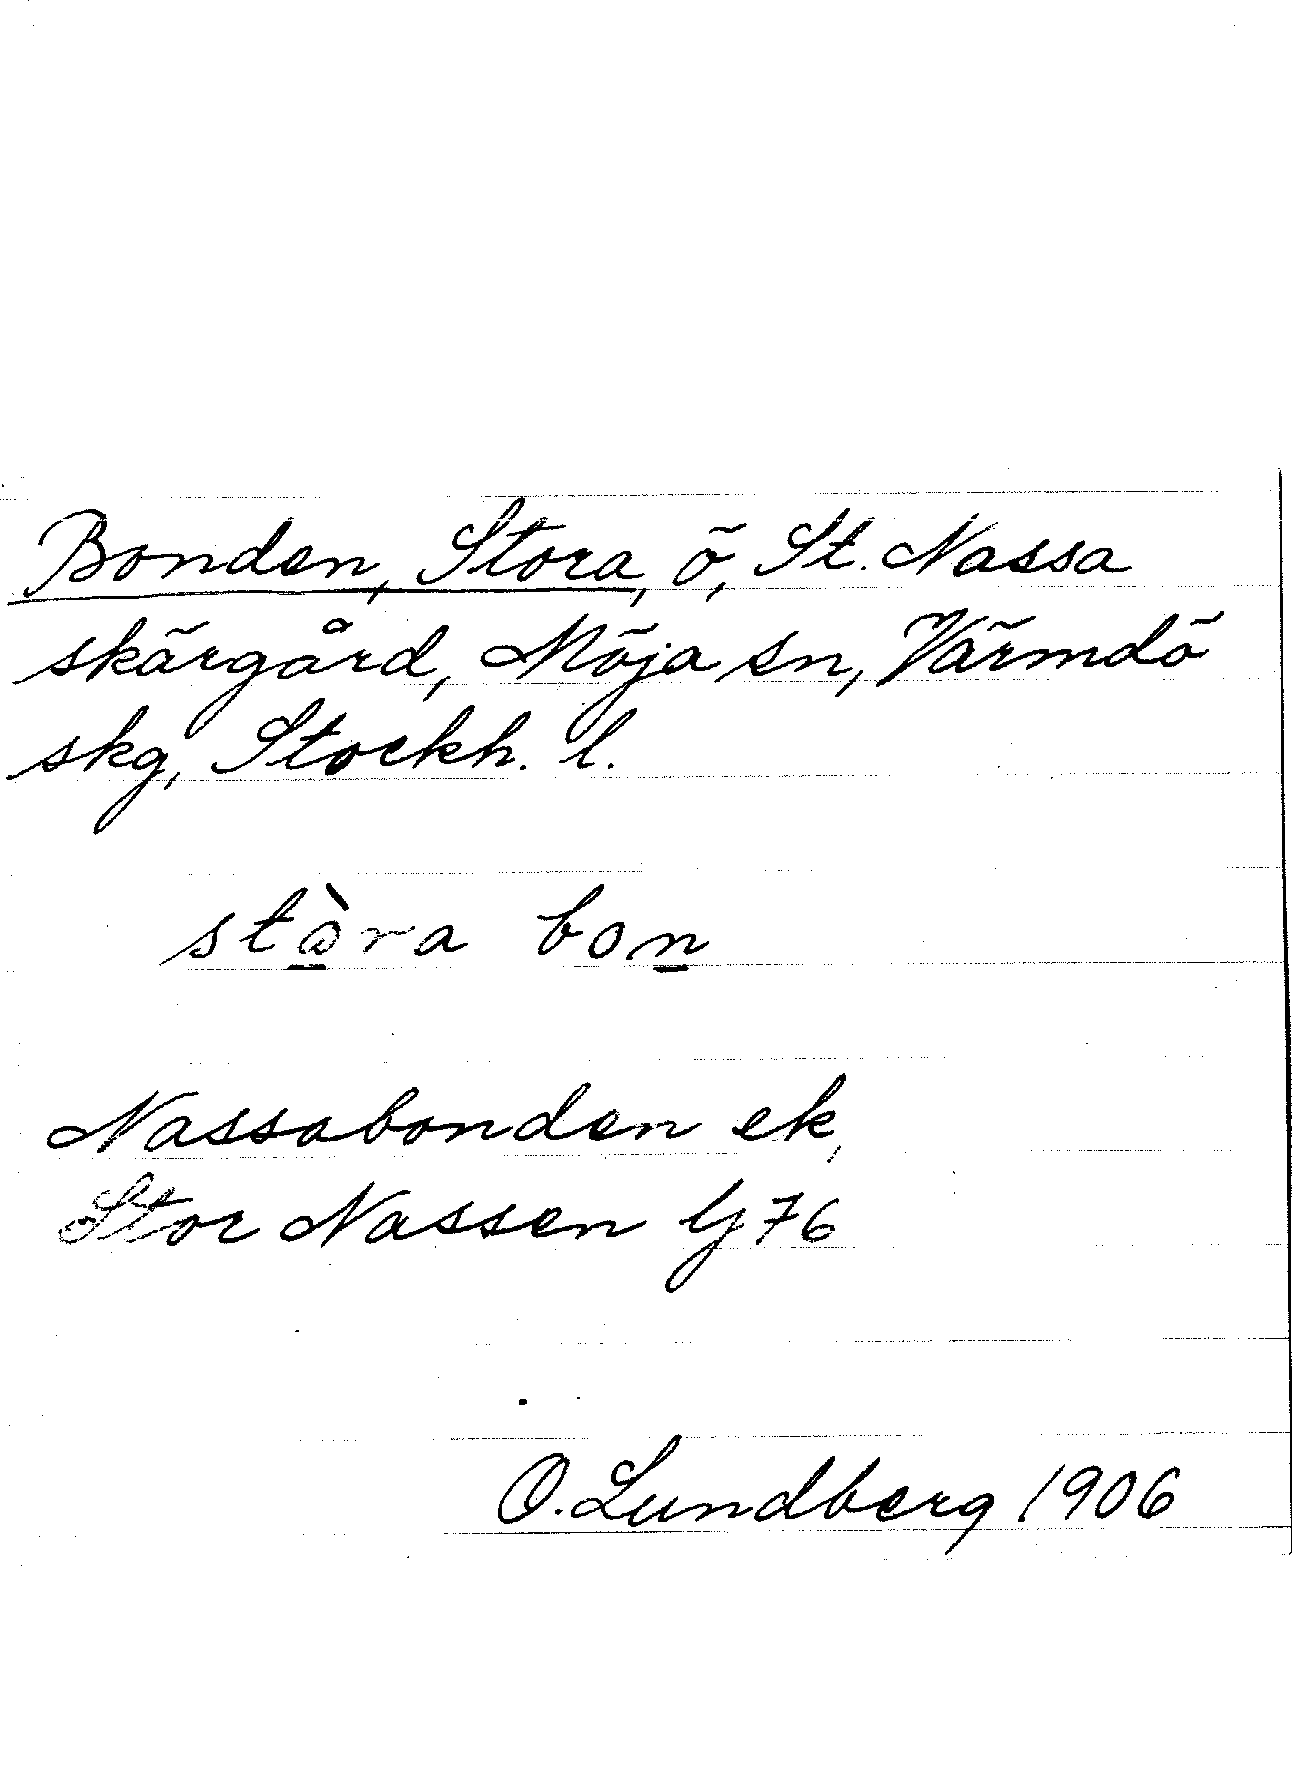 Bonden, Stora, ö, St. Nassa
skärgård, Möja sn, Värmdö
skg, Stockh. l.
bon
Nassabonden ek,
Stor Nassen Gj 76
O. Lundberg 1906